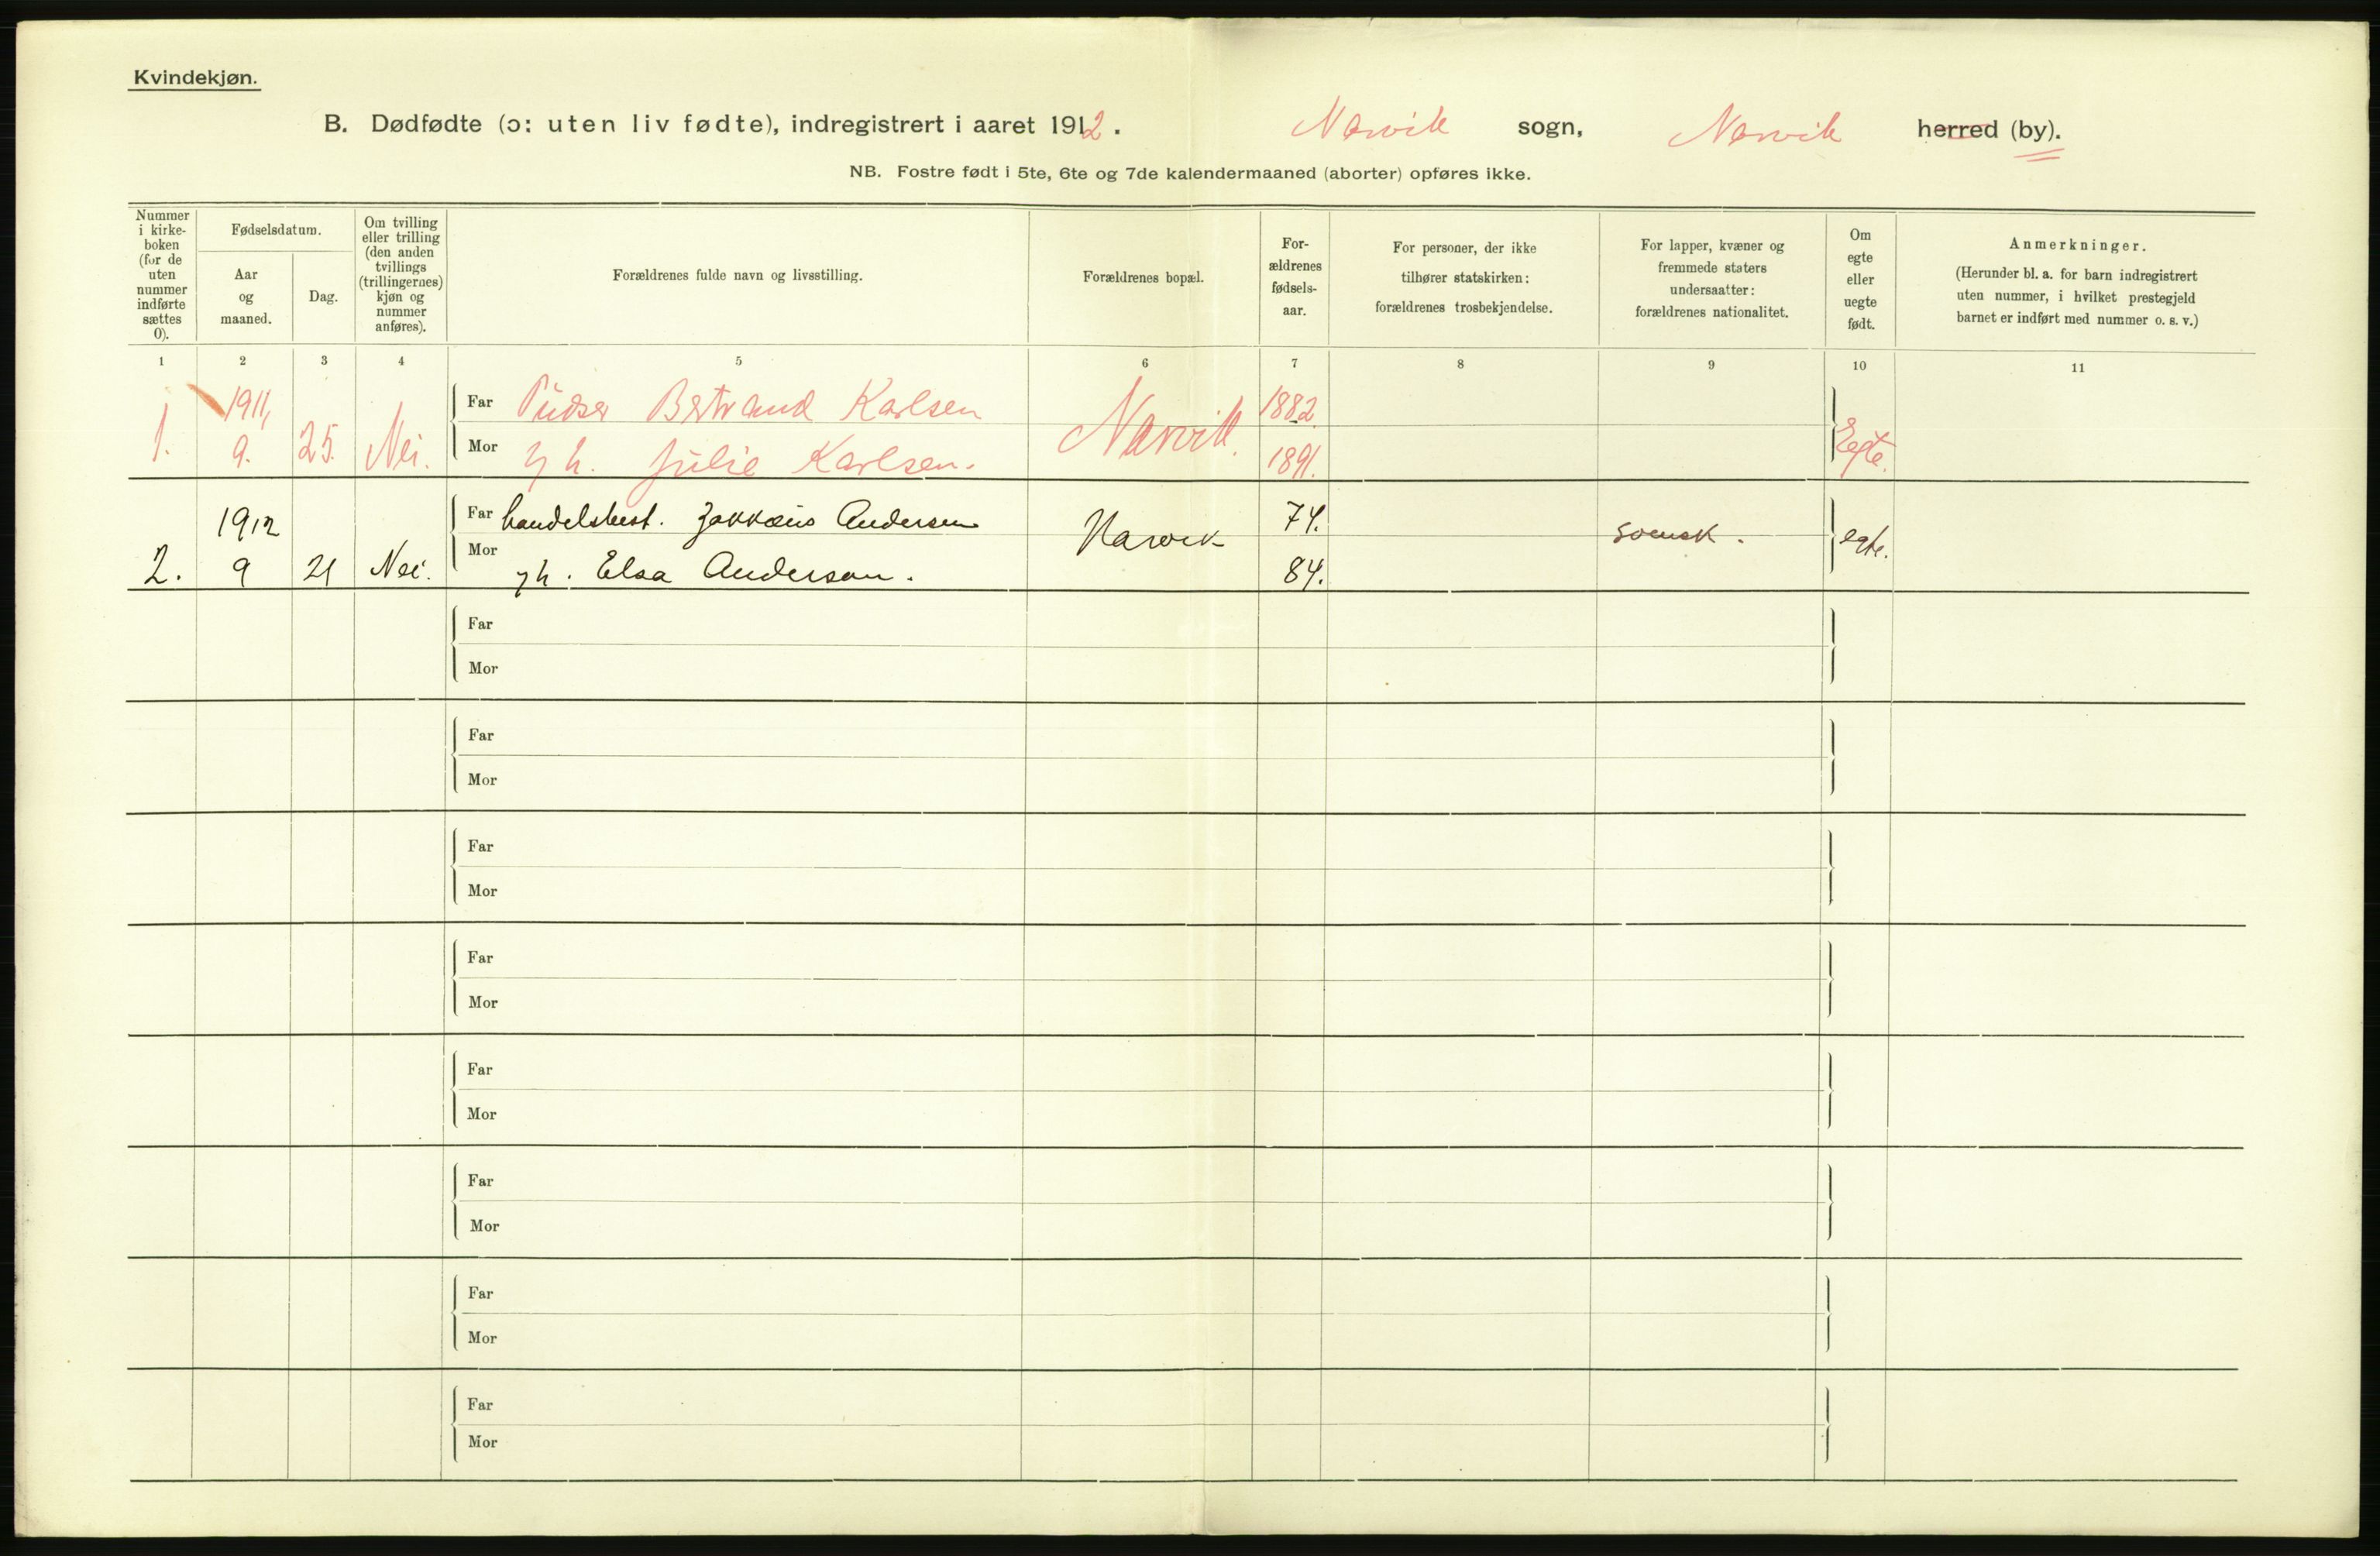 Kvindekjøn.
B. Dødfødte (ɔ: uten liv fødte), indregistrert i aaret 1912. Narvik sogn, Narvik herred (by).
NB. Fostre født i 5te, 6te og 7de kalendermaaned (aborter) opføres ikke.
Nummer
i kirke-
boken
(for de
uten
nummer
indførte
sættes
0).
Fødselsdatum.
Aar
og
maaned.
Dag.
Om tvilling
eller trilling
(den anden
tvillings
(trillingernes)
kjøn og
nummer
anføres).
Forældrenes fulde navn og livsstilling.
Forældrenes bopæl.
For-
ældrenes
fødsels-
aar.
For personer, der ikke
tilhører statskirken:
forældrenes trosbekjendelse.
For lapper, kvæner og
fremmede staters
undersaatter:
forældrenes nationalitet.
Om
egte
eller
uegte
født.
Anmerkninger.
(Herunder bl. a. for barn indregistrert
uten nummer, i hvilket prestegjeld
barnet er indført med nummer o. s. v.)
1 2 3 4 5 6 7 8 9 10 11
1. 1911, 9. 25. Nei.
Far Pudser Bertrand Karlsen 1882.
Mor h. Julie Karlsen. 1891.
Narvik. Egte.
2. 1912 9 21 Nei.
Far handelsbest. Andersen 74.
Mor h. Elsa Anderson. 84.
Narvik svensk. egte.
Far
Mor
Far
Mor
Far
Mor
Far
Mor
Far
Mor
Far
Mor
Far
Mor
Far
Mor